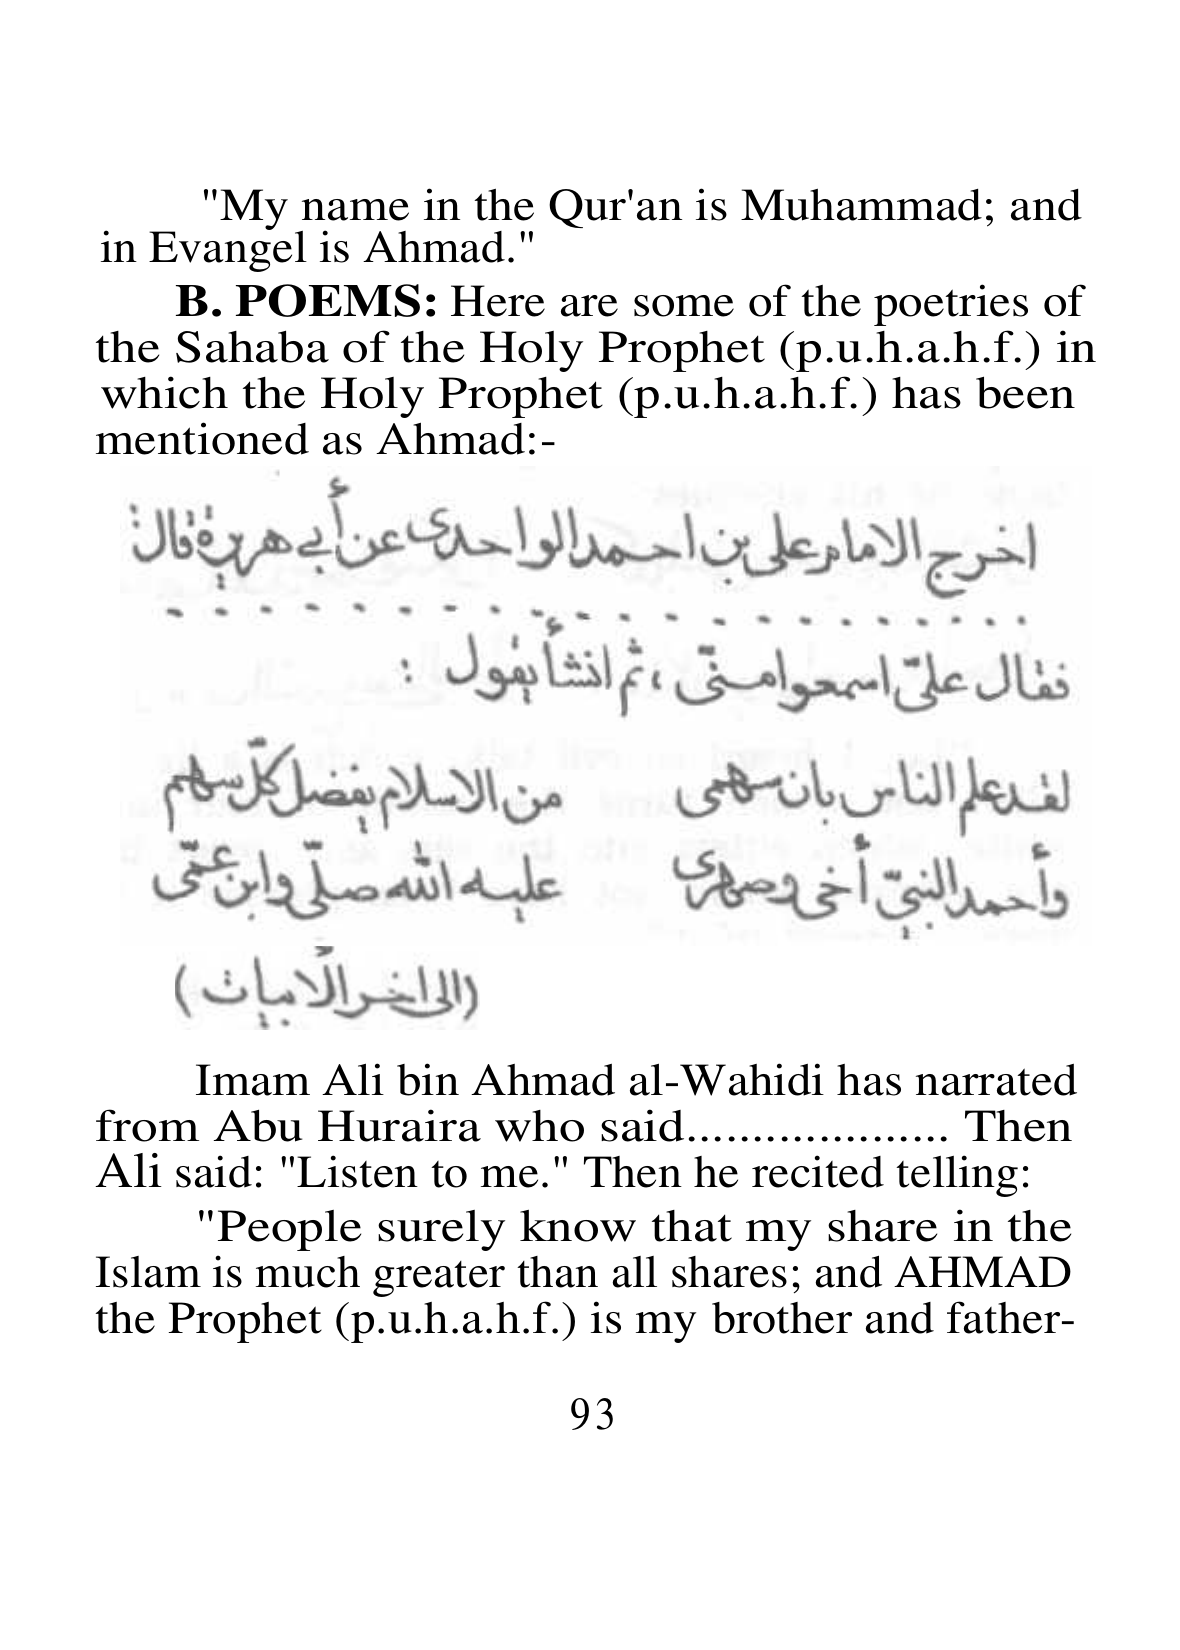 "My name in the Qur'an is Muhammad; and
in Evangel is Ahmad."
B. POEMS: Here are some of the poetries of
the Sahaba of the Holy Prophet (p.u.h.a.h.f.) in
which the Holy Prophet (p.u.h.a.h.f.) has been
mentioned as Ahmad:-
اخرج الامام على بن احمد الواحدى عن أبي هريرة قال:
. . . . . . . . . . . . . . . . . . . .
فقال علىّ اسمعوا منّى ، ثم انشأ يقول :
لقد علم الناس بان سهمى من الاسلام يفضل كلّ سهم
وأحمد النبيّ أخى وصهرى عليه الله صلّى وابن عمّى
(الى اخر الأبيات)
Imam Ali bin Ahmad al-Wahidi has narrated
from Abu Huraira who said.................... Then
Ali said: "Listen to me." Then he recited telling:
"People surely know that my share in the
Islam is much greater than all shares; and AHMAD
the Prophet (p.u.h.a.h.f.) is my brother and father-
93